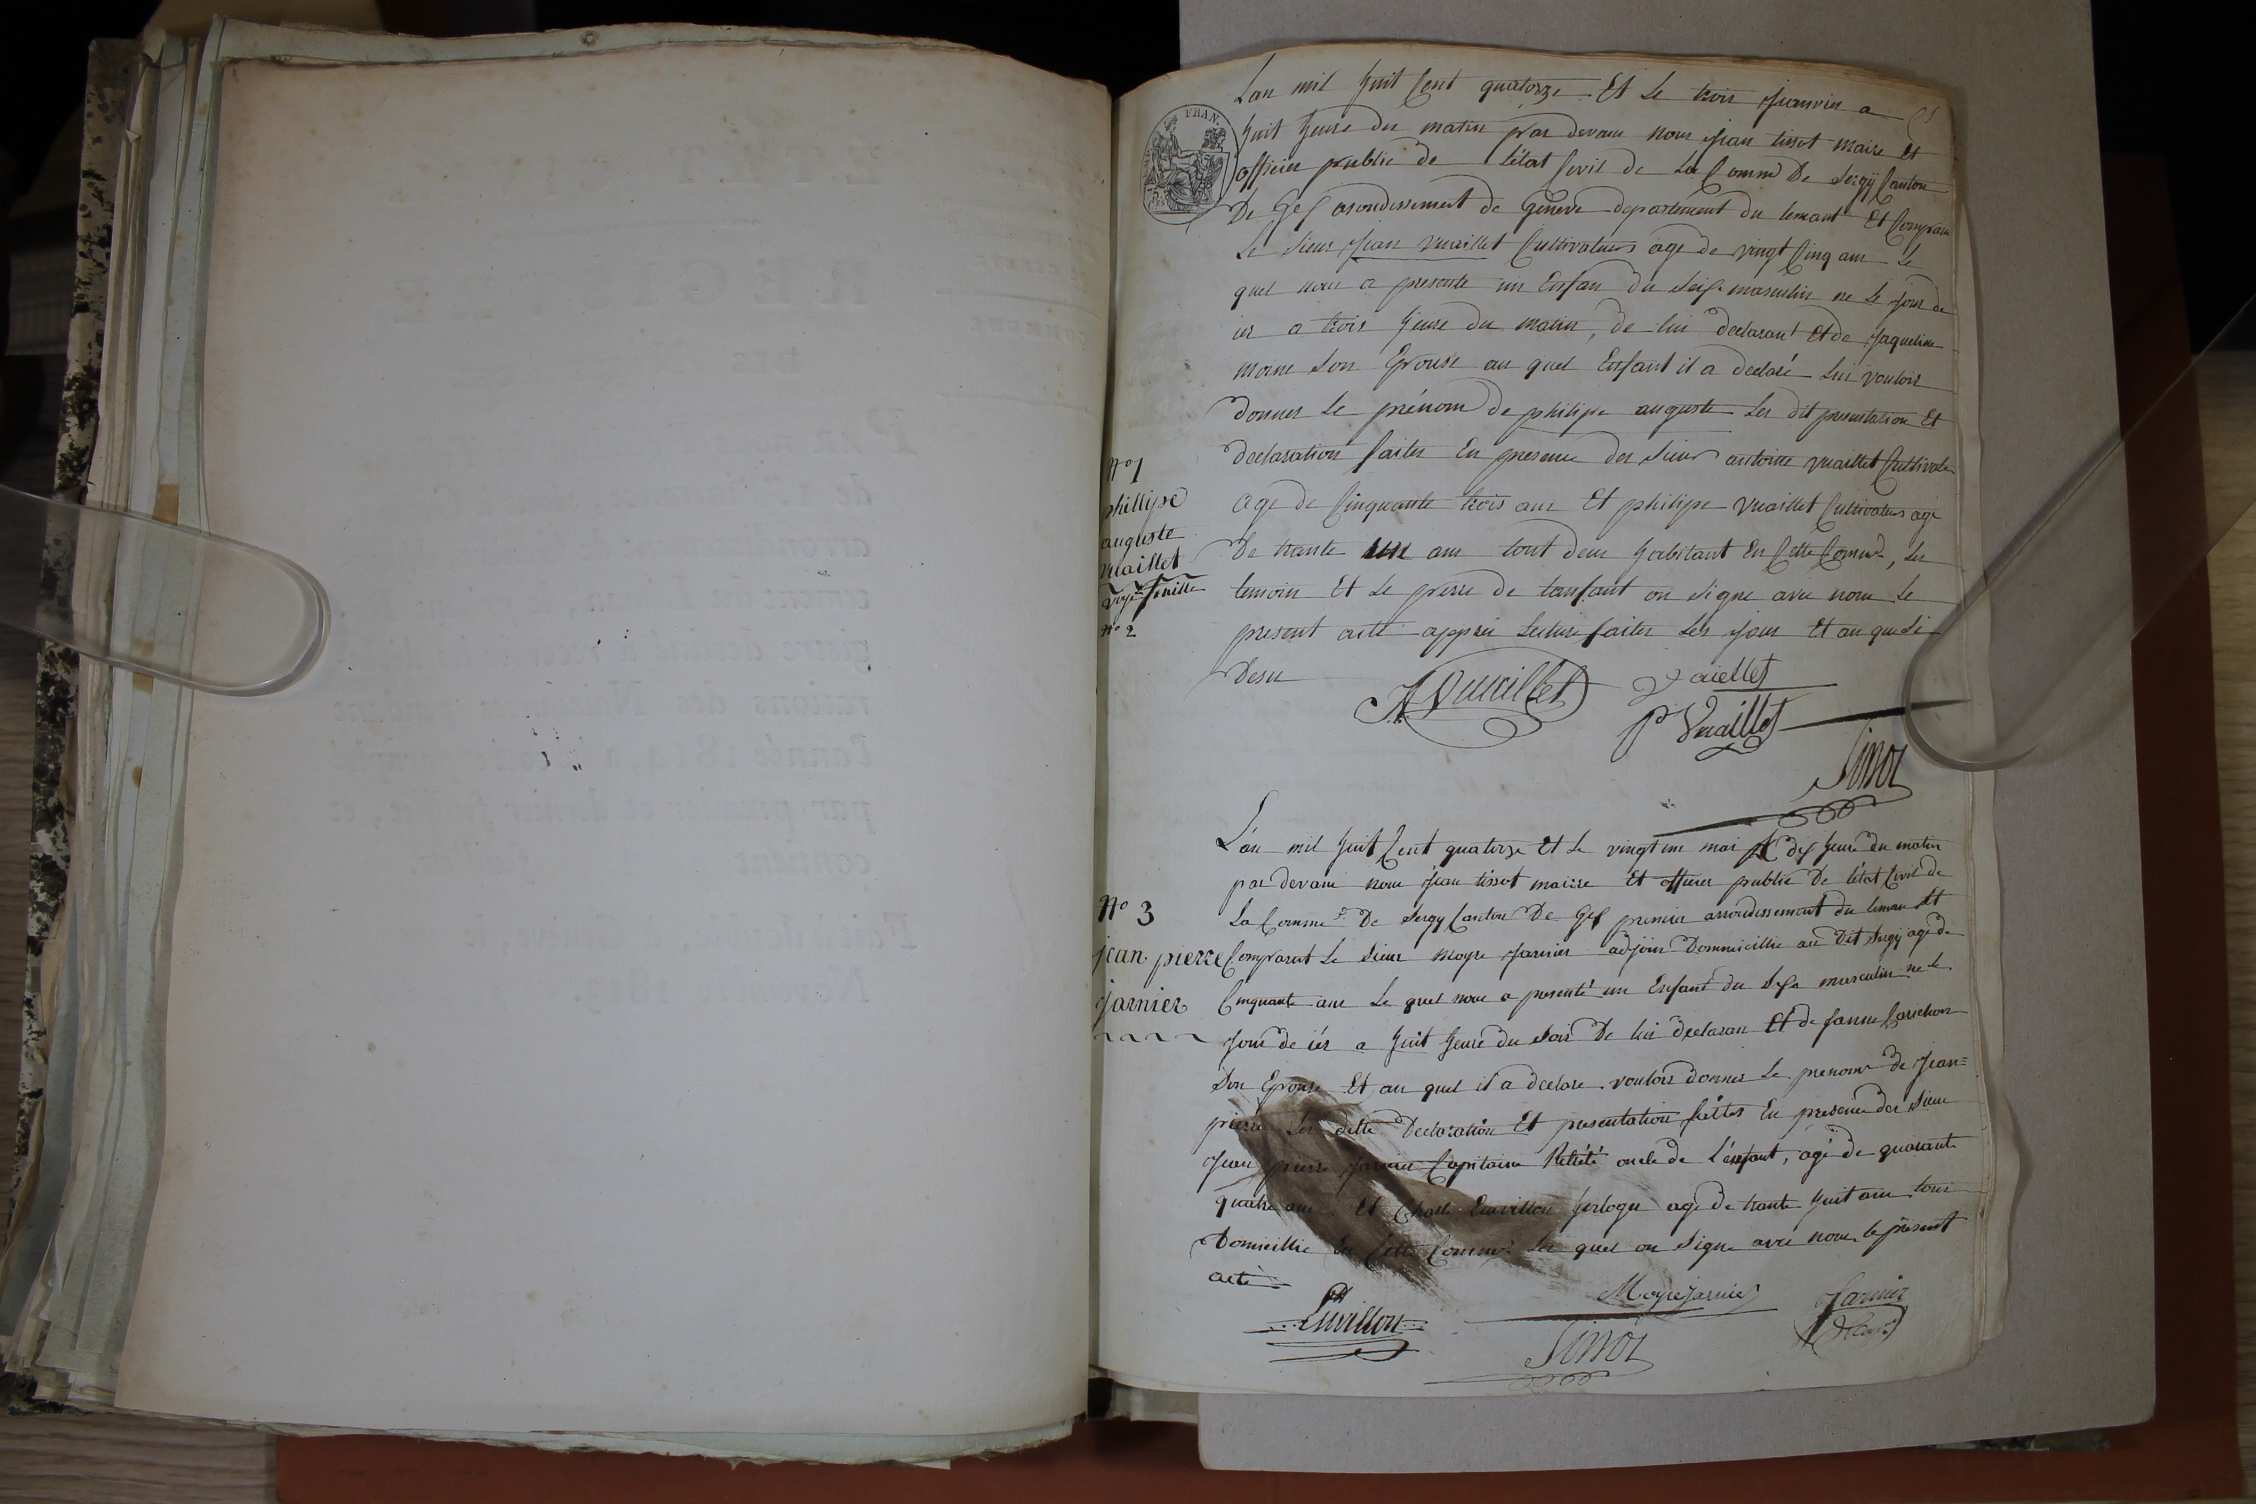 Lan mil huit Cent quatorze Et Le trois Janvier a
huit heure du matin par devant nous Jean tissot maire Et
officier public de l'état Civil de La Comme De Sergÿ Canton
De Gex arondissement de Genève departement du Lemant Et Comparu
Le Sieur Jean Vuaillet Cultivateur agé de vingt Cinq ans Le
quel nous a presenté un Enfan du Seixe masculin né Le Jour de
ier a trois heure du matin, de lui declarant Et de Jaqueline
moine Son Epouse au quel Enfant il a declaré Lui vouloir
donner Le prénom de philipe auguste Les dit presentation Et
declaration faites En presence des Sieur antoine Vuaillet Cultivate
agé de Cinquante trois ans Et philipe Vuaillet Cultivateur agé
De trante un ans tout deux habitant En Cette Comme, Les
temoins Et Le perre de Lanfant on Signe avec nous Le
present acte apprés Lecture faites Les Jour Et an que de
Desu
N° 1
phillipe
auguste
Vuaillet
Voyez feuille
N° 2
A Vuaillet
Vaiellet
P Vuaillet
Tissot
L'an mil huit Cent quatorze Et Le vingt un mai A dix heure du matin
par devant nous Jean tissot maire Et officier public De l'état Civil de
La Comme De Sergy Canton De Gex premier arrondissement du Leman Et
Comparut Le Sieur moyse Jarnier adjoint Dommicillié au Dit Sergy agé de
Cinquante ans Le quel nous a presenté un Enfant du Sexe masculin né Le
Jour de iér a huit heure du Soir De lui declarant Et de Janne
Son Epouse Et au quel il a declaré vouloir donner Le prenom de Jean=
pierre Les ditte Declaration Et presentation faittes En presence des Sieur
Jean pierre Jarnier Capitaine Rétété oncle de L'énfant, agé de quarante
quatre ans Et Charle Envillon horloger agé de trante huit ans tous
Domicillié En Cette Comme Les quel on Signe avec nous le présent
acte
N° 3
jean pierre
jarnier
Envillon
Moyse Jarnier
Jarnier
Tissot